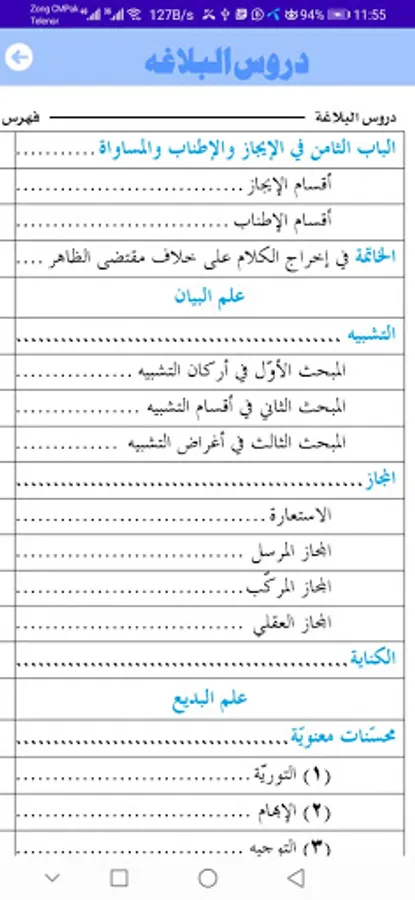 Zong CMPak 4G 3G 127B/s 94% 11:55
Telenor
دروس البلاغه
دروس البلاغة فهرس
الباب الثامن في الإيجاز والإطناب والمساواة ...........
أقسام الإيجاز ...............................
أقسام الإطناب .............................
الخاتمة في إخراج الكلام على خلاف مقتضى الظاهر ....
علم البيان
التشبيه ...............................................
المبحث الأوّل في أركان التشبيه ...............
المبحث الثاني في أقسام التشبيه ...............
المبحث الثالث في أغراض التشبيه ..............
المجاز ..................................................
الاستعارة ..................................
المجاز المرسل ..............................
المجاز المركّب ..............................
المجاز العقلي ..............................
الكناية ................................................
علم البديع
محسّنات معنويّة .......................................
(١) التوريّة ...............................
(٢) الإبهام ...............................
(٣) التوجيه ...............................